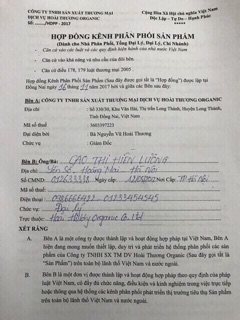 CÔNG TY TNHH SẢN XUẤT THƯƠNG MẠI
DỊCH VỤ HOÀI THƯƠNG ORGANIC
Số: /HDPP - 2017
Cộng Hòa Xã Hội chủ nghĩa Việt Nam
Độc Lập - Tự Do - Hạnh Phúc
HỢP ĐỒNG KÊNH PHÂN PHỐI SẢN PHẨM
(Dành cho Nhà Phân Phối, Tổng Đại Lý, Đại Lý, Chi Nhánh)
- Căn cứ vào các luật và các quy định hiện hành của nhà nước Việt Nam
- Căn cứ vào nhu cầu của hai bên
- Căn cứ điều 178, 179 luật thương mại 2005
Hợp đồng Kênh Phân Phối Sản Phẩm này (sau đây gọi tắt là "Hợp Đồng") được lập tại
Đồng Nai ngày tháng năm 2017 bởi và giữa các bên:
Bên A: CÔNG TY TNHH SẢN XUẤT THƯƠNG MẠI DỊCH VỤ HOÀI THƯƠNG ORGANIC
Địa chỉ : Khu Văn Hải, Thị trấn Long Thành, Huyện Long Thành,
Tỉnh Đồng Nai, Việt Nam
Mã số thuế : 3603397223
Đại diện bởi : Bà Nguyễn Vũ Hoài Thương
Chức vụ : Giám Đốc
Bên B: Ông/Bà: CAO THỊ HIỀN LƯƠNG
Địa chỉ: Hoàng Mai Hà Nội
Số CMND: Ngày cấp Nơi Cấp: TP Hà Nội
Điện thoại:
Chức vụ: Đại Lý
Trực thuộc: Hoài Thương Organic Co.Ltd
XÉT RẰNG
A. Bên A là một công ty được thành lập và hoạt động hợp pháp tại Việt Nam. Bên A hiện
đang mong muốn thiết lập, duy trì và phát triển chuỗi kênh phân phối các sản phẩm của
Công ty TNHH SX TM DV Hoài Thương Organic (Sau đây gọi tắt là
"Sản Phẩm") trên toàn bộ lãnh thổ Việt Nam và nước ngoài.
B. Bên B là một đơn vị được thành lập và hoạt động hợp pháp theo quy định của pháp
luật Việt Nam, có đầy đủ chức năng, điều kiện và kinh nghiệm trong việc trực tiếp
hoặc thông qua hệ thống các kênh phân phối phát triển thị trường tiêu thụ Sản Phẩm
trên toàn bộ lãnh thổ Việt Nam và nước ngoài.